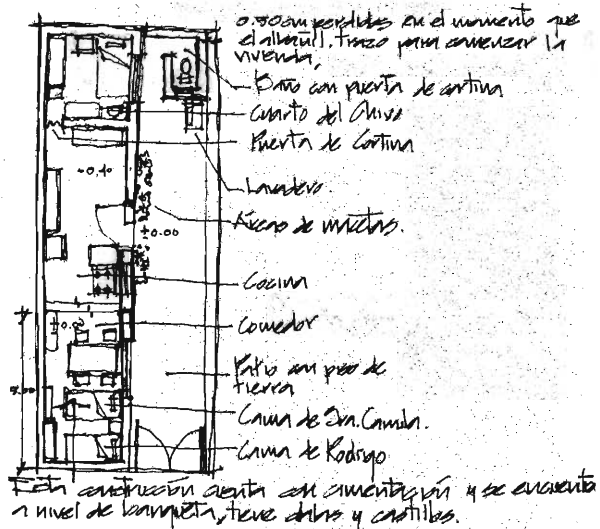 0.90 cm perdidos en el momento que
el albañil trazo para comenzar la
vivienda,
Baño con puerta de cortina
Cuarto del Chivo
Puerta de Cortina
Lavadero
Áreas de macetas.
Cocina
Comedor
Patio con piso de
tierra
Cama de Sra. Camila.
Cama de Rodrigo
±0.00
7.00
Esta construcción cuenta con cimentación y se encuenta
a nivel de banqueta, tiene dalas y castillos.